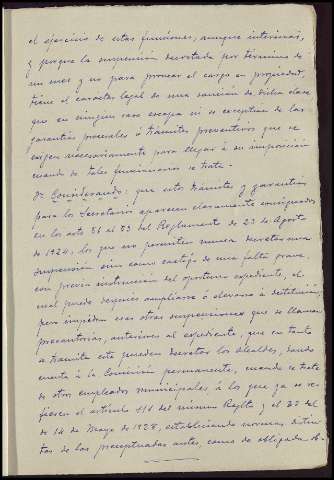 el ejercicio de estas funciones, aunque interinas,
y porque la suspensión decretada por término de
un mes y no para proveer el cargo en propiedad,
tiene el carácter legal de una sanción de dicha clase
que en ningún caso escapa ni se exceptúa de las
garantías procesales ó trámites preventivos que se
exigen necesariamente para llegar á su imposición
cuando de tales funcionarios se trata.
Considerando: que estos trámites y garantías
para los Secretarios aparecen claramente consignados
en los arts 81 al 83 del Reglamento de 23 de Agosto
de 1924, los que no permiten nunca decretar una
suspensión sin como castigo de una falta grave,
con previa instrucción del oportuno expediente, el
cual puede después ampliarse ó elevarse á destitución,
pero impiden esas otras suspensiones que se llaman
precautorias, anteriores al expediente, que en tanto
se tramita este pueden decretar los alcaldes, dando
cuenta á la Comisión permanente, cuando se trate
de otros empleados municipales, á los que ya se re-
fieren el artículo 111 del mismo Reglto y el 22 del
de 14 de Mayo de 1928, estableciendo normas distin-
tas de las preceptuadas antes, como de obligada ob-